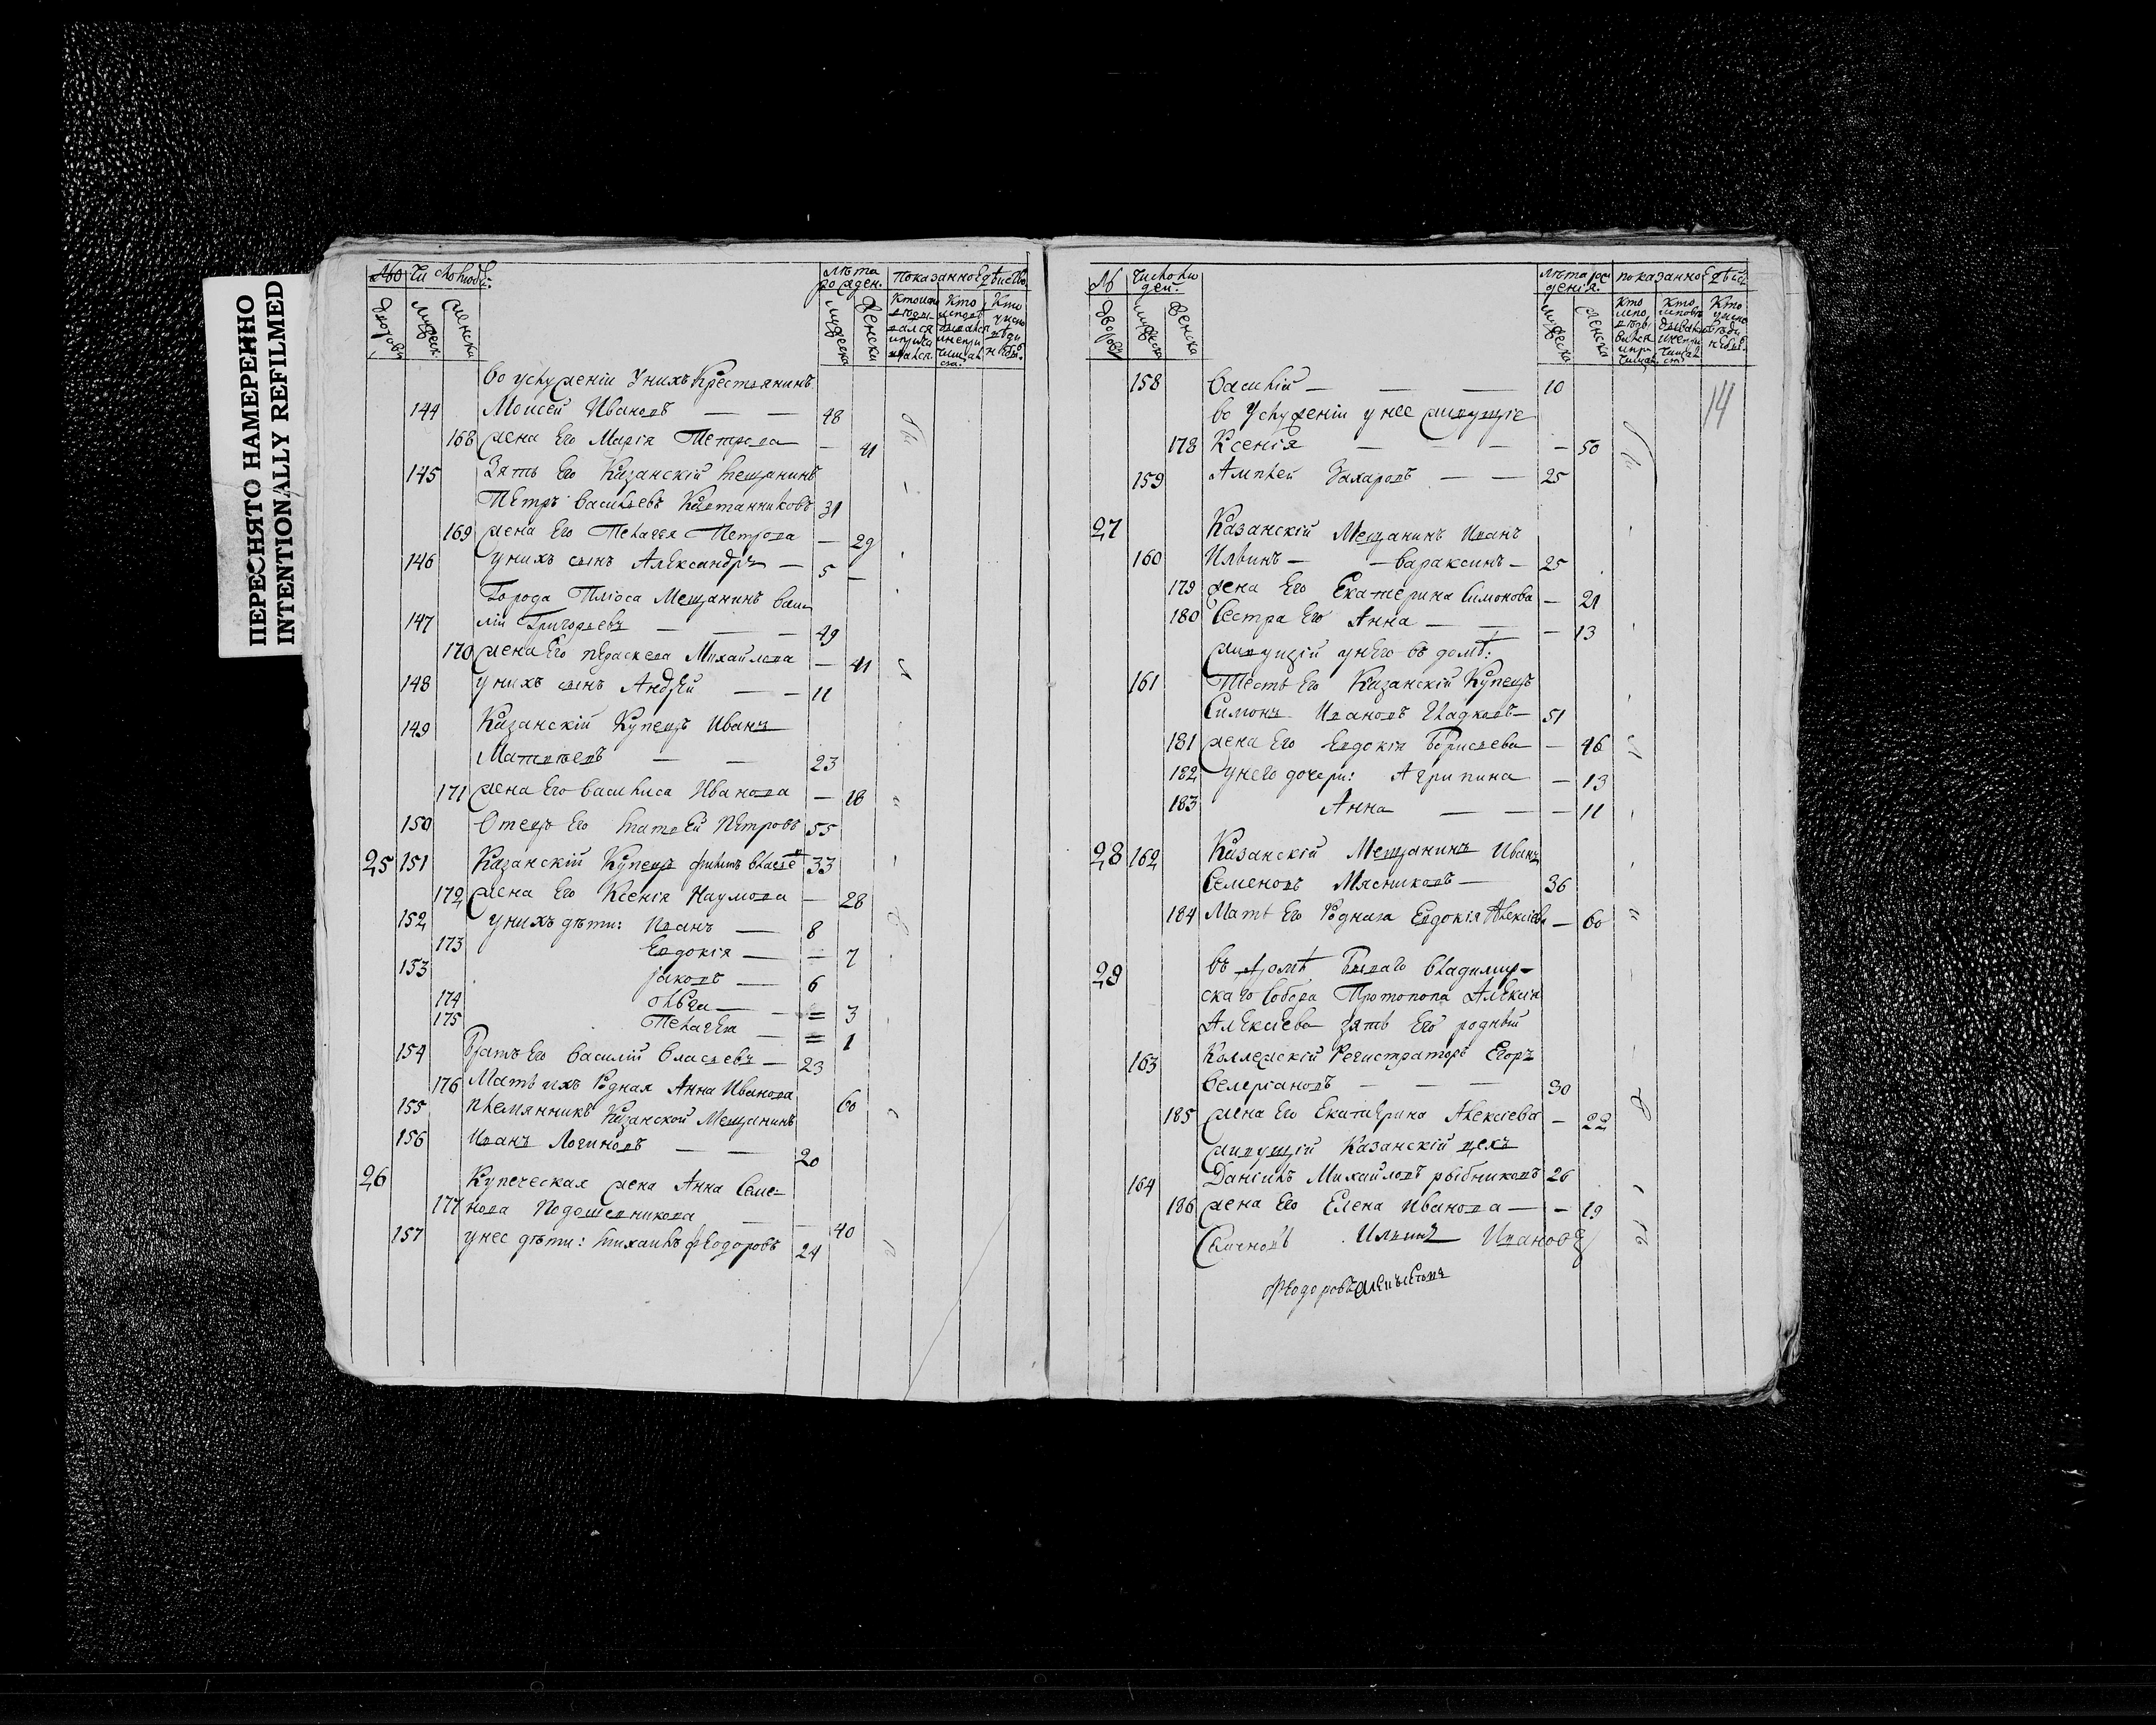 ПЕРЕСНЯТО НАМЕРЕННО
INTENTIONALLY REFILMED
№ Число людей. Лѣта рожден. Показанное дѣйство
дворовъ мужеска женска мужеска женска
во услуженіи у нихъ Крестьянинъ
144 Моисей Ивановъ — — 48
168 жена Его Марія Петрова — 41
145 Зять Его Казанскій мещанинъ
Петръ Васильевъ 31
169 жена Его Пелагея Петрова — 29
146 у нихъ сынъ Александръ — 5 —
Города Пліоса Мещанинъ Васи
147 лій Григорьевъ — — — 49
170 жена Его пераскева Михайлова — 41
148 у нихъ сынъ Андрей — — 11
149 Казанскій Купецъ Иванъ
Матвѣевъ — — 23
171 жена Его Василиса Иванова — 18
150 Отецъ Его матвей Петровъ 55
25 151 Казанскій Купецъ филипъ власъе 33
172 жена Его Ксенія Наумова — 28
152 у нихъ дѣти: Иванъ — 8
173 Евдокія — — 7
153 Яковъ — 6
174 Ольга — = 3
175 Пелагея — = 1
154 Братъ Его Василій Власьевъ — 23
176 Мать ихъ Родная Анна Иванова 60
155 племянникъ Казанской Мещанинъ
156 Иванъ Логиновъ — — 20
26 Купеческая жена Анна Семе-
177 нова Подошевникова — — 40
157 у нее дѣти: михаилъ феодоровъ 24
№ Число людей. Лѣта рожденія. показанное дѣйст
дворовъ мужеска женска мужеска женска
14
158 Василій — — — 10
во Услуженіи у нее живущіе
178 Ксенія — — — — 50
159 Амплей Захаровъ — — 25
27 Казанскій Мещанинъ Иванъ
160 Ильинъ — — вараксинъ — 25
179 жена Его Екатерина Симонова — 21
180 Сестра Его Анна — — — 13
живущій у него въ домѣ:
161 Тесть Его Казанскій Купецъ
Симонъ Ивановъ Гладковъ — 51
181 жена Его Евдокія Борисьева — 46
182 у него дочери: Агрипина — 13
183 Анна — — — 11
28 162 Казанскій Мещанинъ Иванъ
Семеновъ Мясниковъ — 36
184 Мать Его Роднага Евдокія Алексіева — 60
29 въ домѣ Бываго Владимир-
скаго Собора Протопопа Алексія
Алексіева зять Его родный
163 Коллежскій Регистраторъ Егоръ
Селерiановъ — — — 30
185 жена Его Екатерина Алексіева — 22
живущій Казанскій цехъ
164 Даніилъ Михайловъ рыбниковъ 26
186 жена Его Елена Иванова — — 19
Ильинъ Ивановъ
Феодоровъ